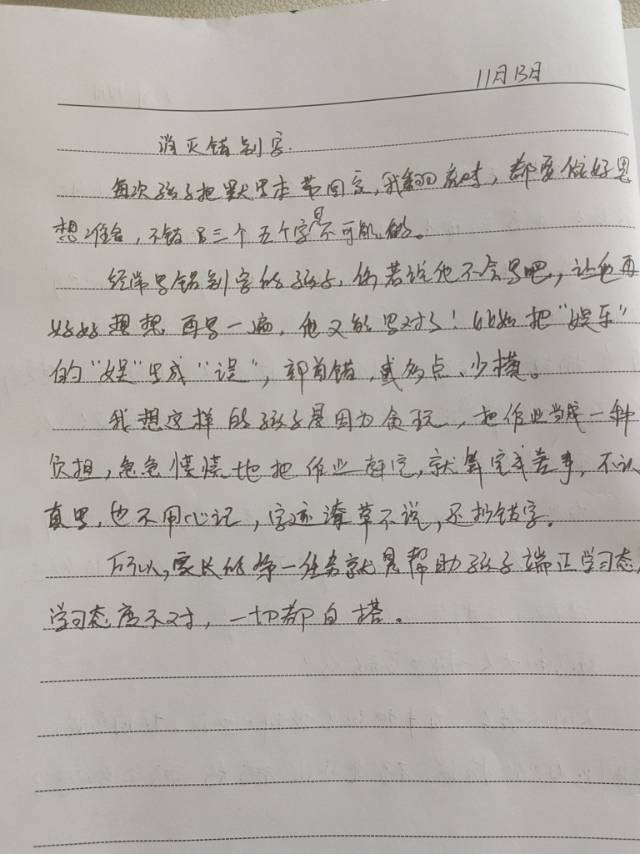 11月13日
消灭错别字
每次孩子把默写本带回家,我翻看时,都要做好思
想准备,不错个三个五个字是不可能的。
经常写错别字的孩子,你若说他不会写吧,让他再
好好想想再写一遍,他又能写对了!比如把“娱乐”
的“娱”写成“误”,部首错,或多点、少横。
我想这样的孩子是因为贪玩,把作业当成一种
负担,急急慌慌地把作业赶完,就算完成差事,不认
真写,也不用心记,字迹潦草不说,还抄错字。
所以,家长的第一任务就是帮助孩子端正学习态,
学习态度不对,一切都白搭。